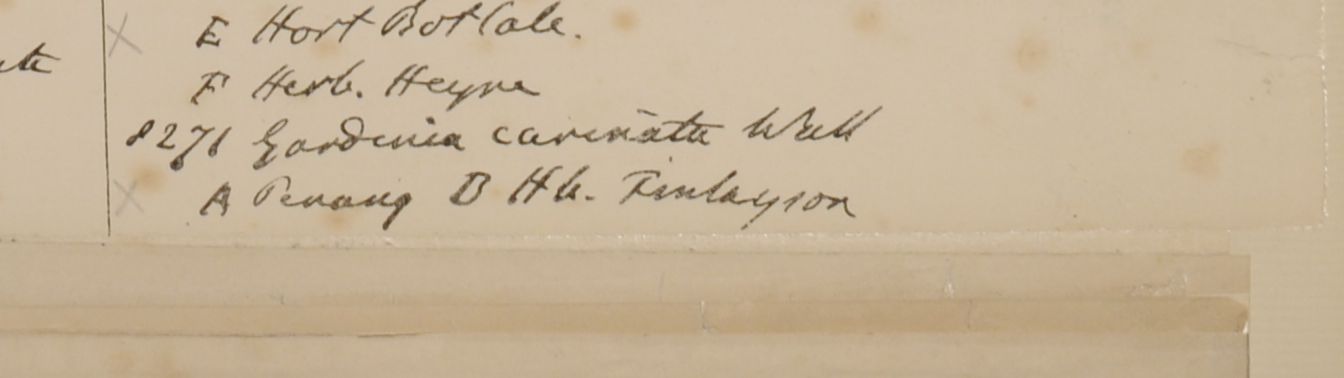 E Hort Bot Calc.
F Herb. Heyne
8271 Gardenia carinata Wall
A Penang B Hb. Finlayson